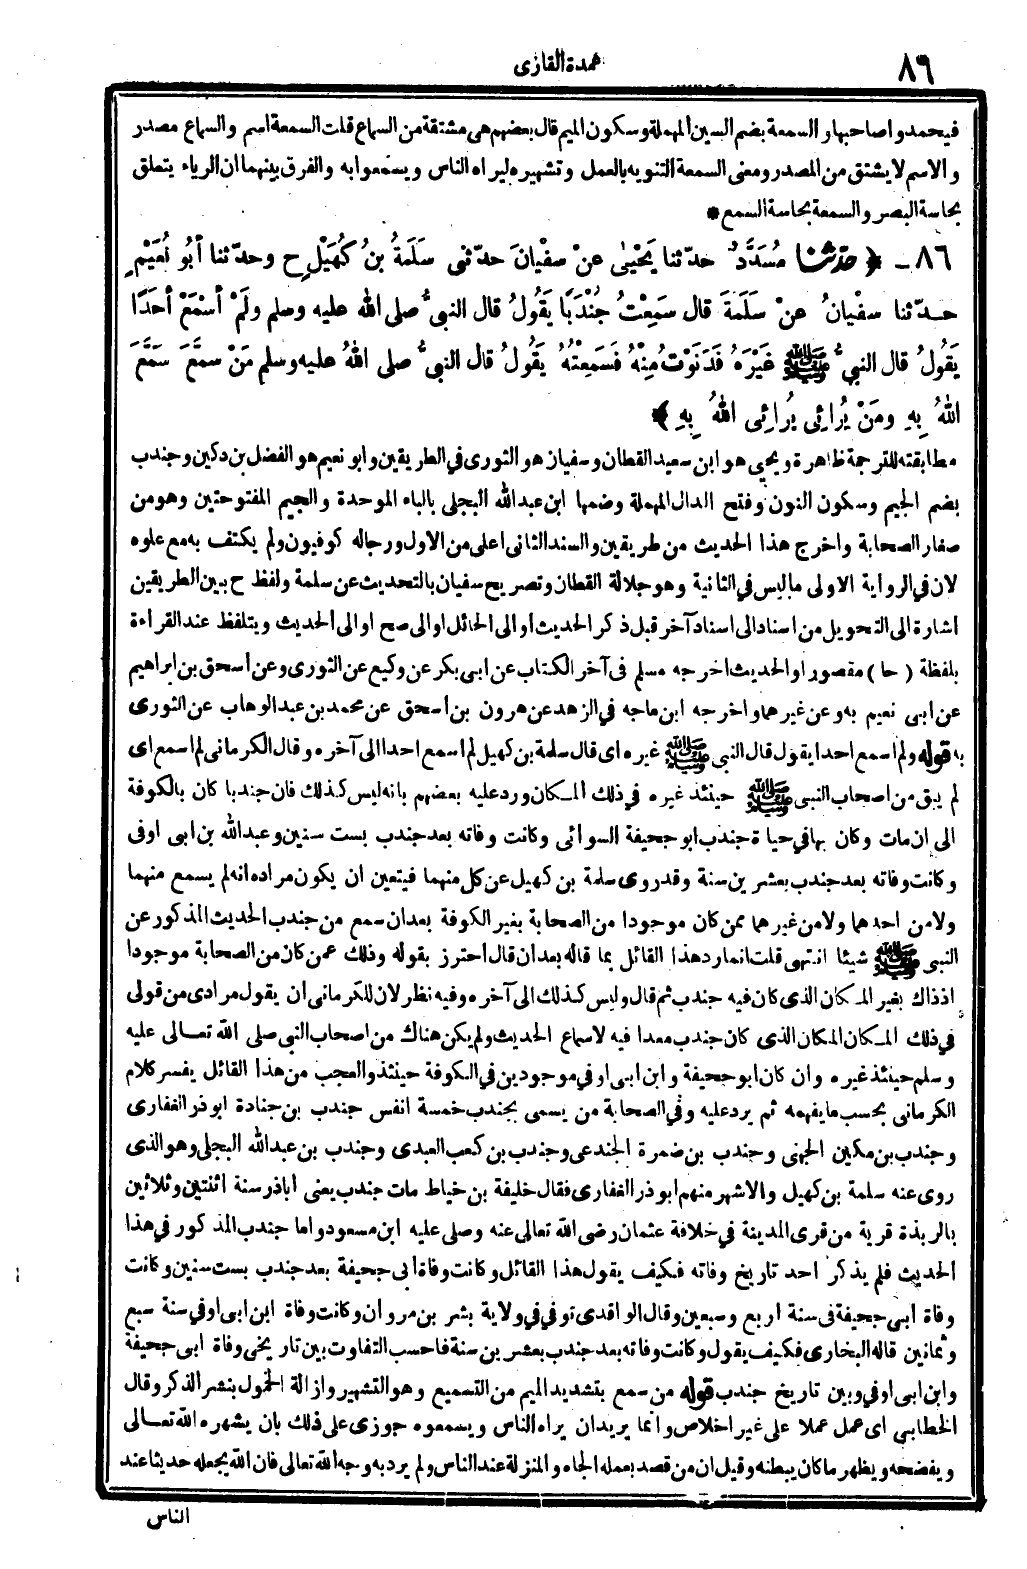 ٨٦
عمدة القارى
فيحمدوا صاحبها والسمعة بضم السين المهملة وسكون الميم قال بعضهم هى مشتقة من السماع قلت السمعة اسم والسماع مصدر
والاسم لا يشتق من المصدر ومعنى السمعة التنويه بالعمل وتشهيره ليراه الناس ويسمعوا به والفرق بينهما ان الرياء يتعلق
بحاسة البصر والسمعة بحاسة السمع *
٨٦ - ﴿ حدّثنا مُسَدَّدٌ حدّثنا يَحْيىٰ عنْ سفْيانَ حدّثنى سَلَمَةُ بنُ كُهَيْلٍ ح وحدّثنا أبُو نُعَيْمٍ
حدّثنا سفْيانُ عنْ سَلَمَةَ قال سَمِعْتُ جُنْدَبًا يَقُولُ قال النبىُّ صلى الله عليه وسلم ولَمْ أسْمَعْ أحَدًا
يَقُولُ قال النبيُّ ﷺ غَيْرَهُ فَدَنَوْتُ مِنْهُ فَسَمِعْتُهُ يَقُولُ قال النبىُّ صلى اللهُ عليه وسلم مَنْ سمَّعَ سَمَّعَ
اللهُ بِهِ ومَنْ يُرائِى يُرائِى اللهُ بِهِ ﴾
مطابقته للترجمة ظاهرة ويحيى هو ابن سعيد القطان وسفيان هو الثورى في الطريقين وابو نعيم هو الفضل بن دكين وجندب
بضم الجيم وسكون النون وفتح الدال المهملة وضمها ابن عبدالله البجلى بالباء الموحدة والجيم المفتوحتين وهو من
صغار الصحابة واخرج هذا الحديث من طريقين والسند الثانى اعلى من الاول ورجاله كوفيون ولم يكتف به مع علوه
لان في الرواية الاولى ما ليس في الثانية وهو جلالة القطان وتصريح سفيان بالتحديث عن سلمة ولفظ ح بين الطريقين
اشارة الى التحويل من اسناد الى اسناد آخر قبل ذكر الحديث او الى الحائل او الى صح او الى الحديث ويتلفظ عند القراءة
بلفظة ( حا ) مقصورا والحديث اخرجه مسلم فى آخر الكتاب عن ابى بكر عن وكيع عن الثورى وعن اسحق بن ابراهيم
عن ابى نعيم به وعن غيرهما واخرجه ابن ماجه في الزهد عن هرون بن اسحق عن محمد بن عبد الوهاب عن الثورى
به قوله ولم اسمع احدا يقول قال النبى ﷺ غيره اى قال سلمة بن كهيل لم اسمع احدا الى آخره وقال الكرمانى لم اسمع اى
لم يبق من اصحاب النبى ﷺ حينئذ غيره في ذلك المكان ورد عليه بعضهم بانه ليس كذلك فان جندبا كان بالكوفة
الى ان مات وكان بها في حياة جندب ابو جحيفة السوائى وكانت وفاته بعد جندب بست سنين وعبدالله بن ابى اوفى
وكانت وفاته بعد جندب بعشرين سنة وقد روى سلمة بن كهيل عن كل منهما فيتعين ان يكون مراده انه لم يسمع منهما
ولا من احدهما ولا من غيرهما ممن كان موجودا من الصحابة بغير الكوفة بعد ان سمع من جندب الحديث المذكور عن
النبى ﷺ شيئا انتهى قلت انما رد هذا القائل بما قاله بعد ان قال احترز بقوله وذلك عمن كان من الصحابة موجودا
اذ ذاك بغير المكان الذى كان فيه جندب ثم قال وليس كذلك الى آخره وفيه نظر لان للكرمانى ان يقول مرادى من قولى
في ذلك المكان المكان الذى كان جندب معدا فيه لاسماع الحديث ولم يكن هناك من اصحاب النبى صلى الله تعالى عليه
وسلم حينئذ غيره وان كان ابو جحيفة وابن ابى اوفي موجودين في الكوفة حينئذ والعجب من هذا القائل يفسر كلام
الكرمانى بحسب ما يفهمه ثم يرد عليه وفي الصحابة من يسمى بجندب خمسة انفس جندب بن جنادة ابو ذر الغفارى
وجندب بن مكين الجهنى وجندب بن ضمرة الجندعى وجندب بن كعب العبدى وجندب بن عبدالله البجلى وهو الذى
روى عنه سلمة بن كهيل والاشهر منهم ابو ذر الغفارى فقال خليفة بن خياط مات جندب يعنى اباذر سنة اثنتين وثلاثين
بالربذة قرية من قرى المدينة في خلافة عثمان رضى الله تعالى عنه وصلى عليه ابن مسعود واما جندب المذكور في هذا
الحديث فلم يذكر احد تاريخ وفاته فكيف يقول هذا القائل وكانت وفاة ابى جحيفة بعد جندب بست سنين وكانت
وفاة ابى جحيفة فى سنة اربع وسبعين وقال الواقدى توفي في ولاية بشر بن مروان وكانت وفاة ابن ابى اوفي سنة سبع
وثمانين قاله البخارى فكيف يقول وكانت وفاته بعد جندب بعشرين سنة فاحسب التفاوت بين تاريخى وفاة ابى جحيفة
وابن ابى اوفي وبين تاريخ جندب قوله من سمع بتشديد الميم من التسميع وهو التشهير وازالة الخمول بنشر الذكر وقال
الخطابى اى عمل عملا على غير اخلاص وانما يريد ان يراه الناس ويسمعوه جوزى على ذلك بان يشهره الله تعالى
ويفضحه ويظهر ما كان يبطنه وقيل ان من قصد بعمله الجاه والمنزلة عند الناس ولم يرد به وجه الله تعالى فان الله يجعله حديثا عند
الناس